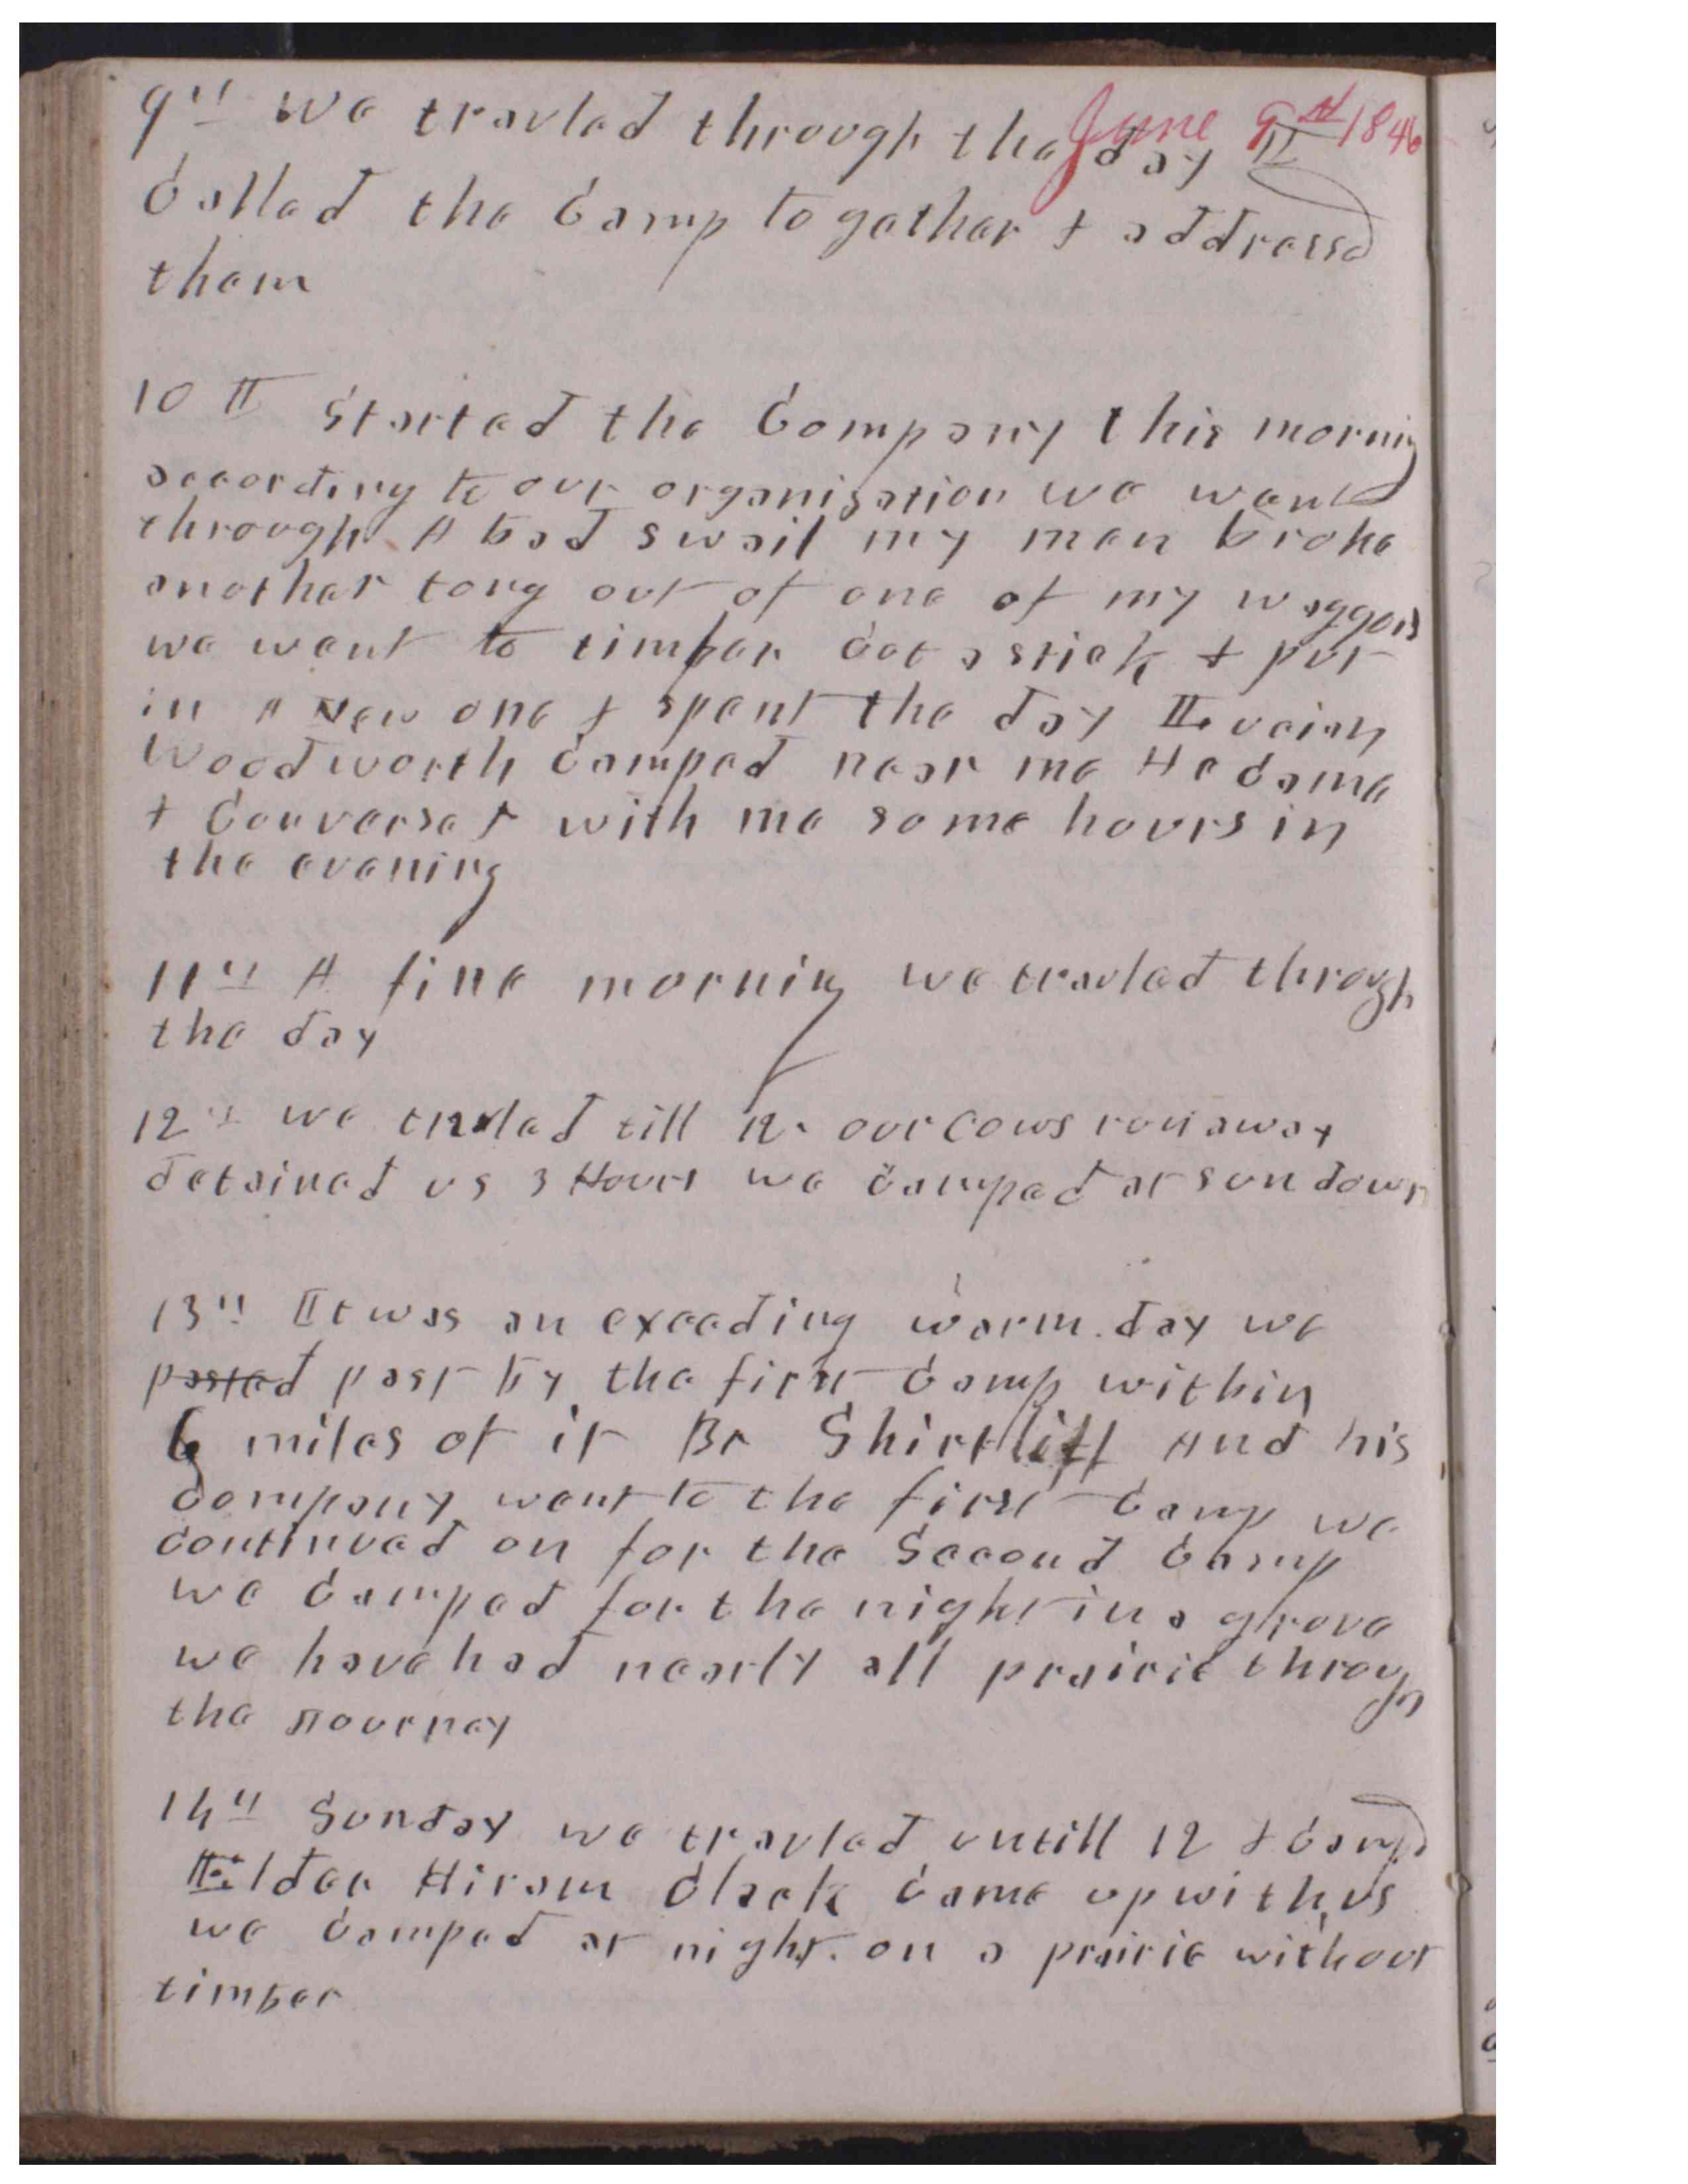 June 9th 1846
9th We travled through the day I
Called the Camp together & addressed
them
10th Started the Company this morning
according to our organization we went
through A bad swail my men broke
another tong out of one of my waggons
we went to timber Got a stick & put
in A New one & spent the day
Woodworth Camped near me He Came
& Converset with me some hours in
the evening
11th A fine morning we travled through
the day
12th we travled till 12. our cows ron away
detained us 3 Hours we Camped at sun down
13th It was an exceeding warm day we
pasted past by the first Camp within
6 miles of it Br Shirtliff And his
Company went to the first Camp we
Continued on for the Second Camp
we Camped for the night in a grove
we have had nearly all prairie through
the journey
14th Sunday we travled untill 12 & Camped
Elder Hiram Clark Came up with us
we Camped at night. on a prairie without
timber